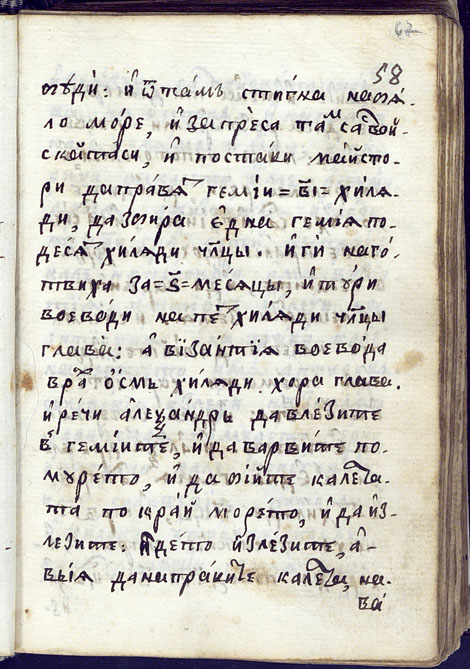 67
58
и҆ ѿ та́мъ стигна на бѧ-
ло мо́ре, и҆ запре́са таⷨ са вой-
ската си, и҆ постави ма́йсто-
ри да пра́вѧⷮ геми́и =в҃і= хилѧ-
ди, да збира є҆дна гемїѧ по
десѧⷮ хилѧди чл҃цы. и҆ ги наго́-
твиха за =ѕ҃= ме́сѧцы, и҆ тури
воево́ди на пеⷮ хилѧди чл҃цы
глава̀: а҆ византи́ѧ воево́да
враⷯ о҆́смь хилѧди хора глава.
и҆ речи а҆леѯандрь да влѣ́зите
в геміите, и҆ да варви́те по
муре́то, и҆ да бїйте кале́та-
та по кра́й море́то, и҆ да и҆з-
ле́зите: и дето и҆зле́зите, а҆-
выѧ да напра́вите кале́та, на-
ва́